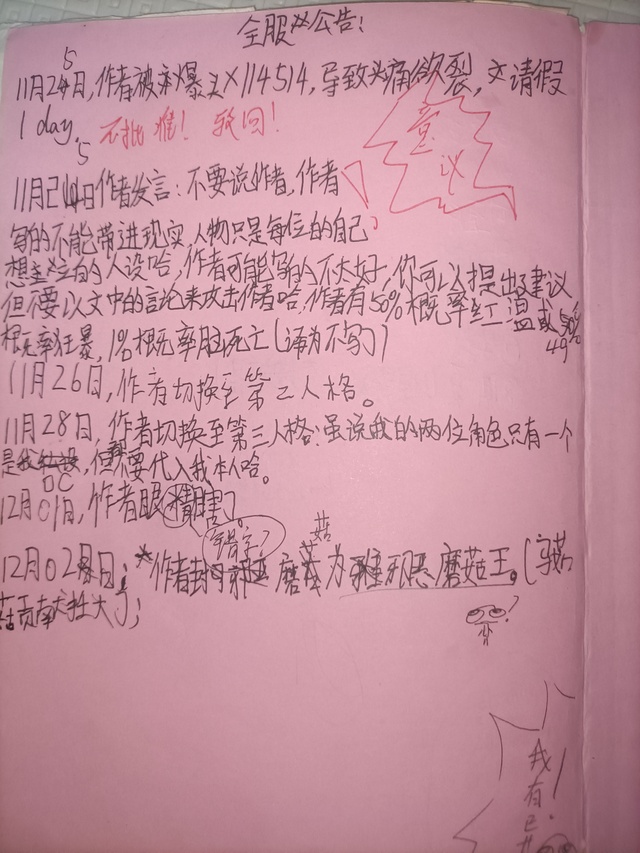 全服公告！
11月25日，作者被亲爆头×114514，导致头痛欲裂，文请假
1 day。不批准！驳回！
意议
11月25日作者发言：不要说作者，作者
写的不能带进现实，人物只是每位的自己
想位的人设哈，作者可能写的不太好，你可以提出建议
但不要以文中的言论来攻击作者哈，作者有50%概率红温或50%
概率狂暴，1%概率脑死亡（译为不写了）
49
11月26日，作者切换至第二人格。
11月28日，作者切换至第三人格：虽说我的两位角色只有一个
是我OC，但不要代入我本人哈。
12月01日，作者眼睛瞎了
12月02日；*作者封蘑菇为邪恶蘑菇王。（
错字？
菇
我有已